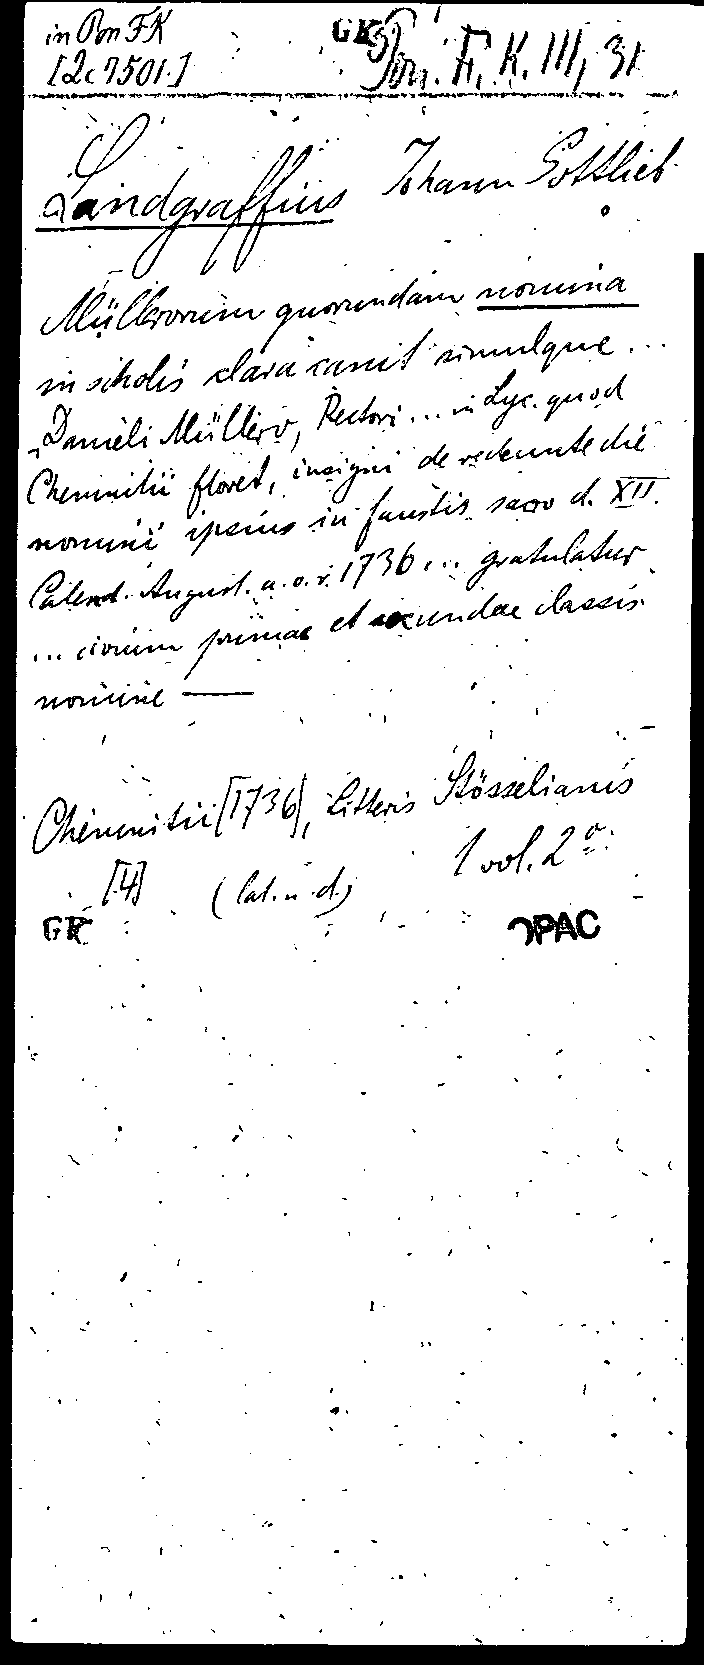 in Pon FK
[2c 7501.]
GK
Pon. F. K. III, 31
Landgraffius Johann Gottlieb
Müllerorum quorundam nomina
in scholis clara canit simulque ...
Danieli Müllero, Rectori ... in Lyc. quod
Chemnitii floret, insigni de redeunte die
nominis ipsius in faustis sacro d. XII.
Calend. August. a. o. r. 1736 ... gratulatur
... civium primae et secundae classis
nomine —
Chemnitii [1736], Litteris Stösselianis
[4] (lat. u. d.) 1 vol. 2°.
GK OPAC